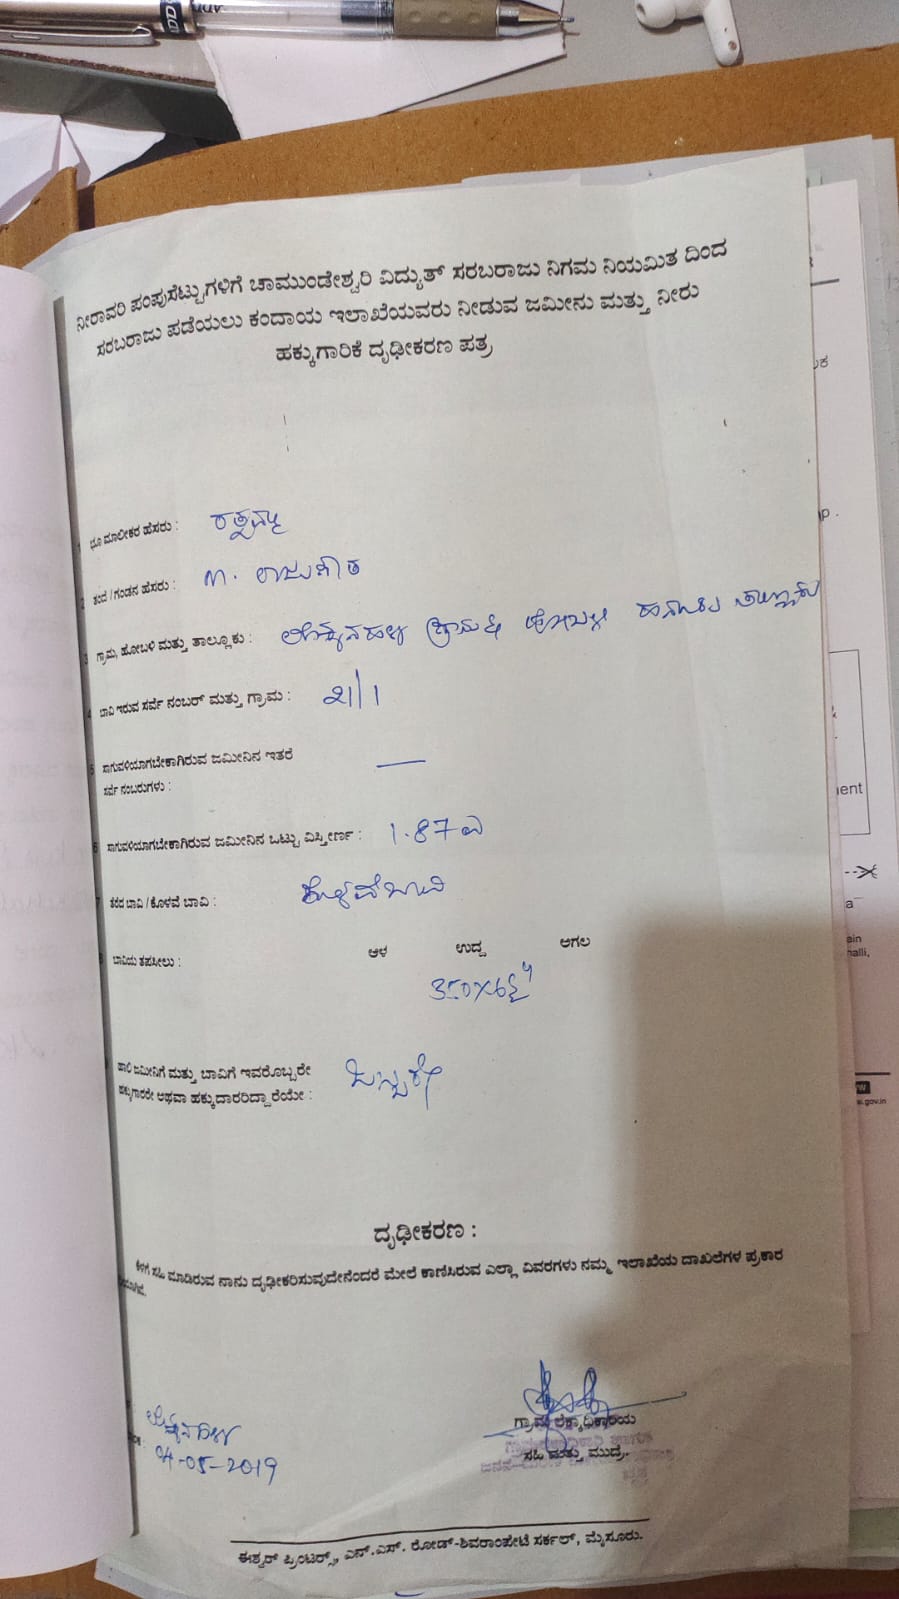 ನೀರಾವರಿ ಪಂಪುಸೆಟ್ಟುಗಳಿಗೆ ಚಾಮುಂಡೇಶ್ವರಿ ವಿದ್ಯುತ್ ಸರಬರಾಜು ನಿಗಮ ನಿಯಮಿತ ದಿಂದ
ಸರಬರಾಜು ಪಡೆಯಲು ಕಂದಾಯ ಇಲಾಖೆಯವರು ನೀಡುವ ಜಮೀನು ಮತ್ತು ನೀರು
ಹಕ್ಕುಗಾರಿಕೆ ದೃಢೀಕರಣ ಪತ್ರ
ಭೂ ಮಾಲೀಕರ ಹೆಸರು : ರತ್ನಮ್ಮ
2 ತಂದೆ / ಗಂಡನ ಹೆಸರು :
3 ಗ್ರಾಮ, ಹೋಬಳಿ ಮತ್ತು ತಾಲ್ಲೂಕು :
4 ಬಾವಿ ಇರುವ ಸರ್ವೆ ನಂಬರ್ ಮತ್ತು ಗ್ರಾಮ : 21/1
5 ಸಾಗುವಳಿಯಾಗಬೇಕಾಗಿರುವ ಜಮೀನಿನ ಇತರೆ —
ಸರ್ವೆ ನಂಬರುಗಳು :
6 ಸಾಗುವಳಿಯಾಗಬೇಕಾಗಿರುವ ಜಮೀನಿನ ಒಟ್ಟು ವಿಸ್ತೀರ್ಣ : 1.87 ಎ
7 ತೆರದ ಬಾವಿ / ಕೊಳವೆ ಬಾವಿ : ಕೊಳವೆ ಬಾವಿ
8 ಬಾವಿಯ ತಪಸೀಲು : ಆಳ ಉದ್ದ ಅಗಲ
ಹಾಲಿ ಜಮೀನಿಗೆ ಮತ್ತು ಬಾವಿಗೆ ಇವರೊಬ್ಬರೇ ಒಬ್ಬರೇ
ಹಕ್ಕುಗಾರರೇ ಅಥವಾ ಹಕ್ಕುದಾರರಿದ್ದಾರೆಯೇ :
ದೃಢೀಕರಣ :
ಕೆಳಗೆ ಸಹಿ ಮಾಡಿರುವ ನಾನು ದೃಢೀಕರಿಸುವುದೇನೆಂದರೆ ಮೇಲೆ ಕಾಣಿಸಿರುವ ಎಲ್ಲಾ ವಿವರಗಳು ನಮ್ಮ ಇಲಾಖೆಯ ದಾಖಲೆಗಳ ಪ್ರಕಾರ
04-05-2019
ಗ್ರಾಮ ಲೆಕ್ಕಾಧಿಕಾರಿಯ
ಸಹಿ ಮತ್ತು ಮುದ್ರೆ.
ಈಶ್ವರ್ ಪ್ರಿಂಟರ್ಸ್, ಎನ್.ಎಸ್. ರೋಡ್-ಶಿವರಾಂಪೇಟೆ ಸರ್ಕಲ್, ಮೈಸೂರು.